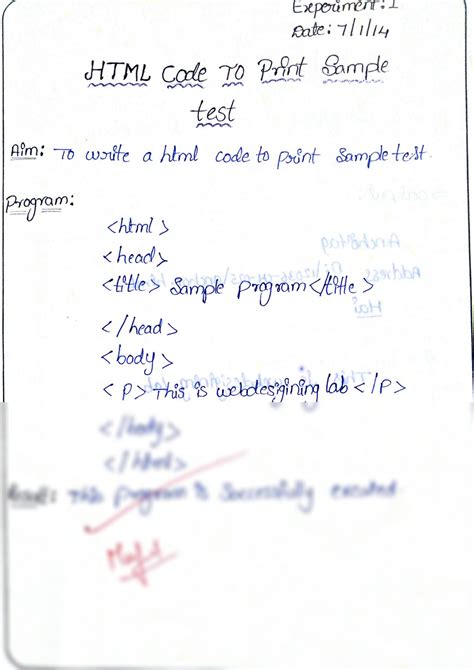 Experiment: 1
Date: 7/1/14
HTML Code To Print Sample
test
Aim: To write a html code to print sample test.
Program:
<html>
<head>
<title> Sample Program </title>
</head>
<body>
<P> This is webdesigining lab </P>
</body>
</html>
Result: This program is Successfully executed